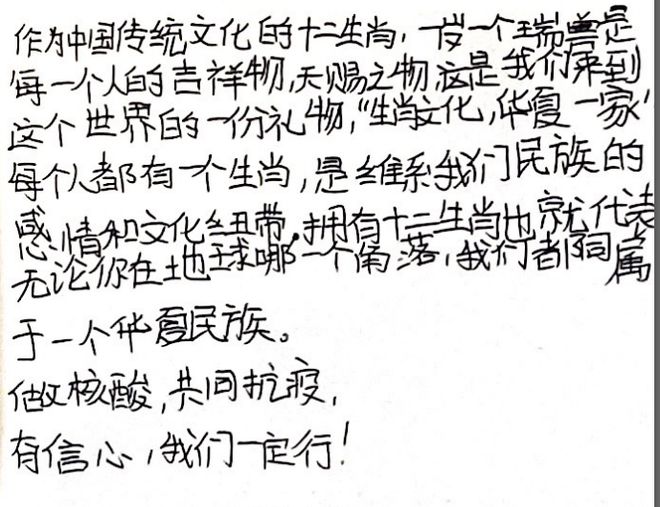 作为中国传统文化的十二生肖，一岁一个瑞兽是
每一个人的吉祥物，天赐之物，这是我们来到
这个世界的一份礼物，“生肖文化，华夏一家”
每个人都有一个生肖，是维系我们民族的
感情和文化纽带，拥有十二生肖也就代表
无论你在地球哪一个角落，我们都同属
于一个华夏民族。
做核酸，共同抗疫，
有信心，我们一定行！